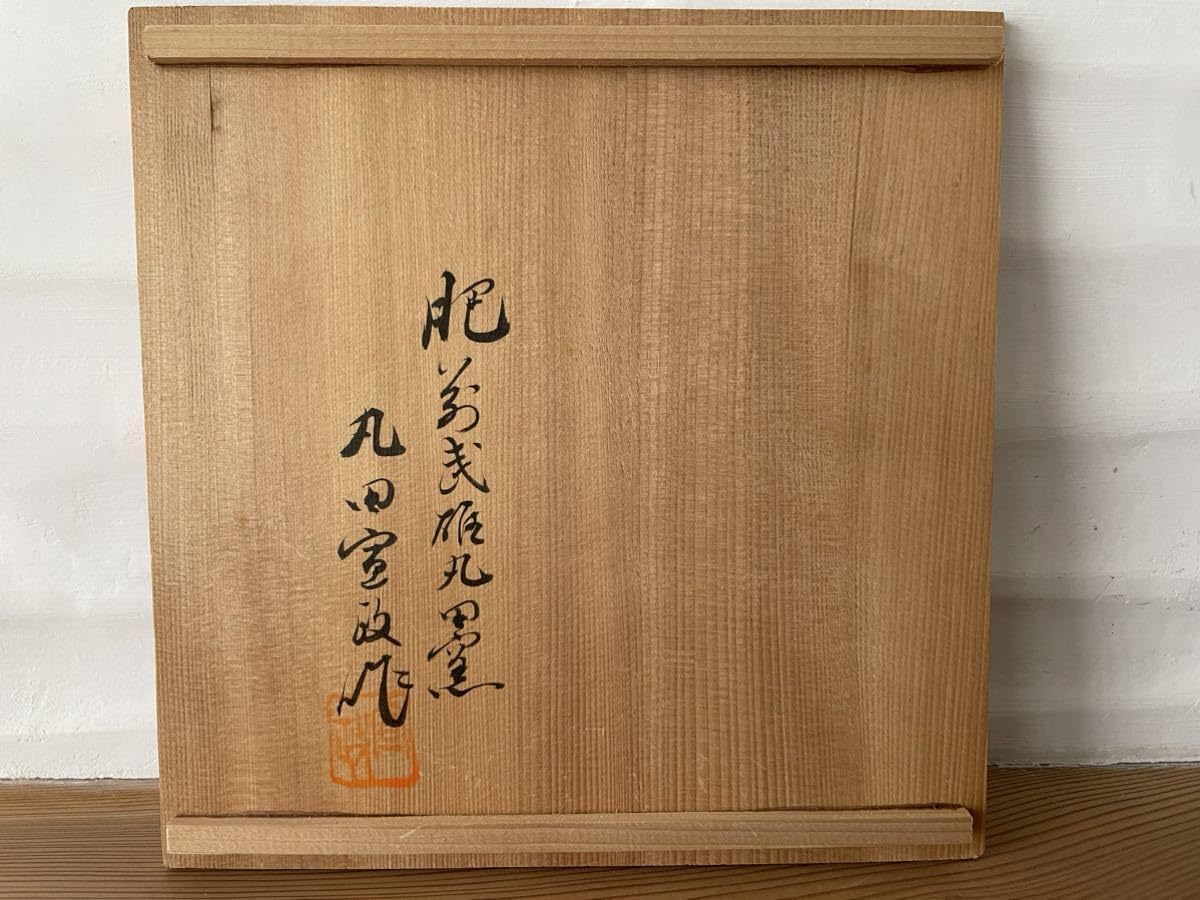 肥前武雄丸田窯
丸田宣政作